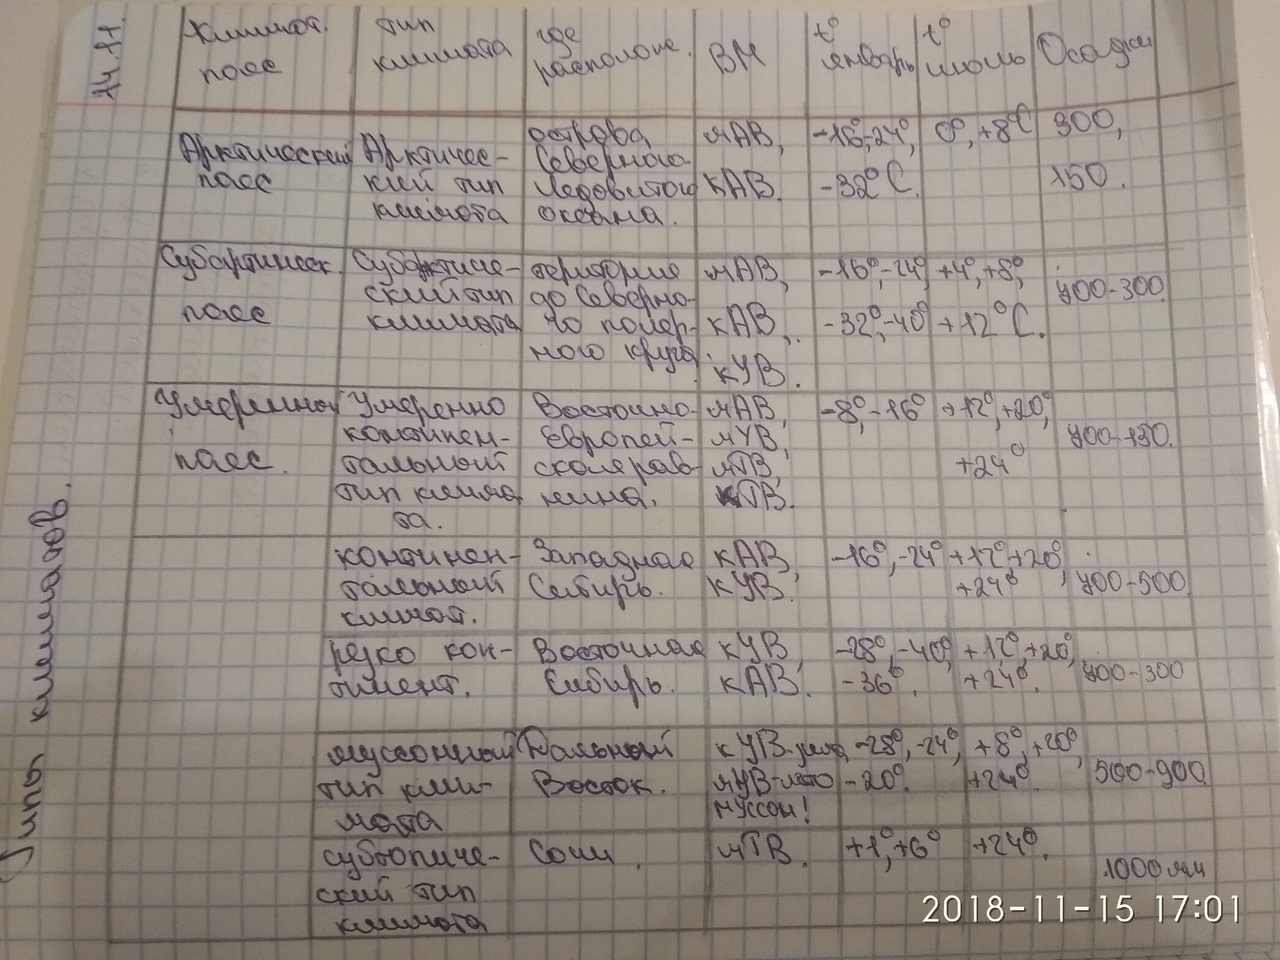 14.11
Типы климатов.
Климат. пояс
тип климата
где располож.
ВМ
t° январь
t° июль
Осадки
Арктический пояс
Арктичес-
кий тип
климата
острова
Северного
Ледовитого
океана.
мАВ,
кАВ.
-16°,-24°,
-32°С.
0°, +8°С
300,
150.
Субарктическ.
пояс
Субарктиче-
ский тип
климата
територие
до Северно-
го поляр-
ного круга.
мАВ,
кАВ,
кУВ.
-16°,-24°,
-32°,-40°
+4°, +8°,
+12°С.
400-300.
Умеренный
пояс.
Умеренно
континен-
тальный
тип клима
та.
Восточно-
Европей-
ская рав-
нина.
мАВ,
мУВ,
мТВ,
кТВ.
-8°,-16°
+12°, +20°,
+24°
400-150.
континен-
тальный
климат.
Западная
Сибирь.
кАВ,
кУВ.
-16°, -24°
+12°, +20°,
+24°
400-500
резко кон-
тинент.
Восточная
Сибирь.
кУВ,
кАВ.
-28°, -40°,
-36°.
+12°, +20°,
+24°.
400-300
муссонный
тип кли-
мата
Дальний
Восток.
кУВ-зима,
мУВ-лето
муссон!
-28°, -24°,
-20°.
+8°, +20°,
+24°.
500-900
субтопиче-
ский тип
климата
Сочи.
мТВ.
+1°, +6°
+24°.
1000 мм
2018-11-15 17:01